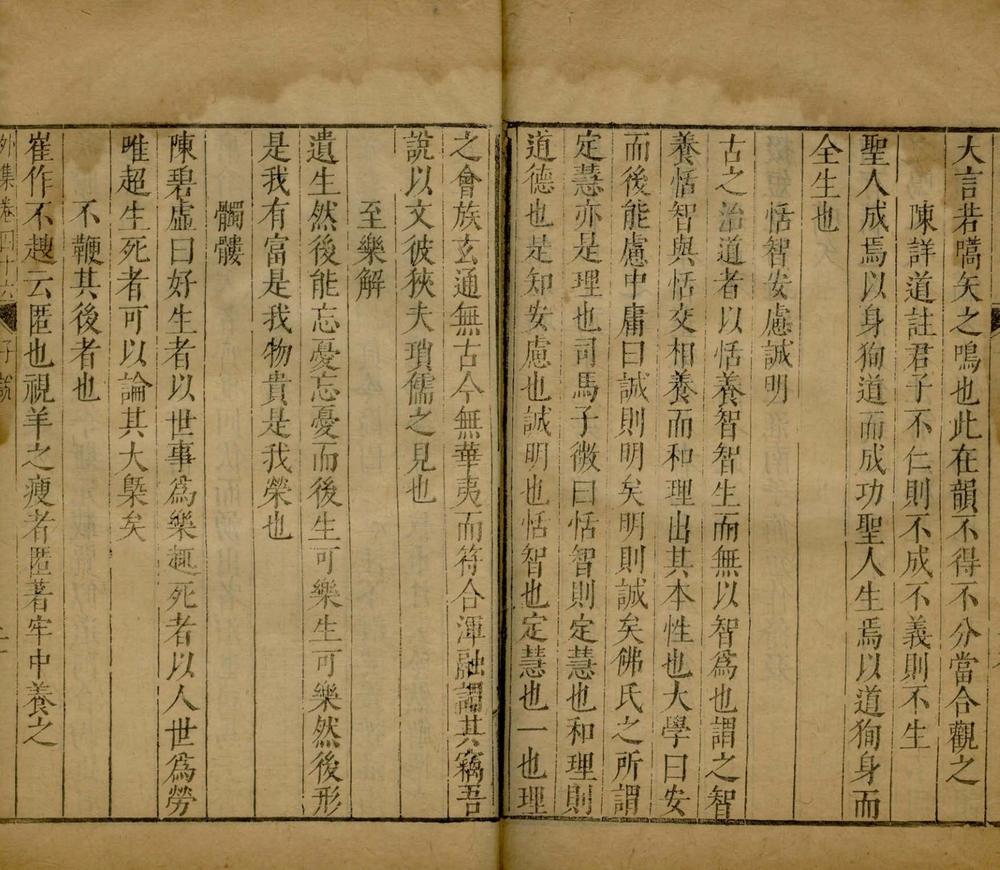 大言若嚆矢之鳴也此在韻不得不分當合觀之
陳詳道註君子不仁則不成不義則不生
聖人成焉以身狥道而成功聖人生焉以道狥身而
全生也
恬智安慮誠明
古之治道者以恬養智智生而無以智爲也謂之智
養恬智與恬交相養而和理出其本性也大學曰安
而後能慮中庸曰誠則明矣明則誠矣佛氏之所謂
定慧亦是理也司馬子微曰恬智則定慧也和理則
道德也是知安慮也誠明也恬智也定慧也一也理
之會族玄通無古今無華夷而符合渾融謂其竊吾
說以文彼狹夫瑣儒之見也
至樂解
遺生然後能忘憂忘憂而後生可樂生可樂然後形
是我有富是我物貴是我榮也
髑髏
陳碧虛曰好生者以世事爲樂趣死者以人世爲勞
唯超生死者可以論其大槩矣
不鞭其後者也
崔作不趣云匿也視羊之瘦者匿著牢中養之
外集卷四十六